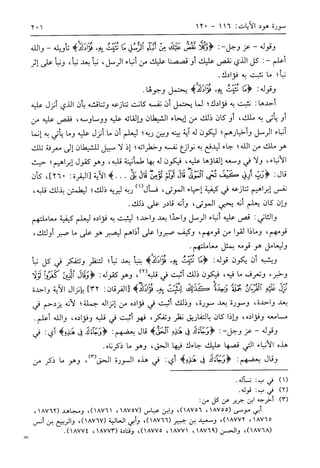 سورة هود الآيات: ١١٦ - ١٢٠
٢٠١
وقوله - عز وجل-: ﴿وَكُلًّا نَقُصُّ عَلَيْكَ مِنْ أَنْبَاءِ الرُّسُلِ مَا نُثَبِّتُ بِهِ فُؤَادَكَ﴾ تأويله - والله
أعلم -: كل الذي نقص عليك أو قصصنا عليك من أنباء الرسل، نبأ بعد نبأ، ونبأ على إثر
نبأ؛ ما نثبت به فؤادك.
وقوله: ﴿مَا نُثَبِّتُ بِهِ فُؤَادَكَ﴾ يحتمل وجوهًا.
أحدها: نثبت به فؤادك؛ لما يحتمل أن نفسه كانت تنازعه وتناقشه بأن الذي أنزل عليه
أو يأتي به ملك، أو كان ذلك من إيحاء الشيطان وإلقائه عليه ووساوسه، فقص عليه من
أنباء الرسل وأخبارهم؛ ليكون له آية بينه وبين ربه؛ ليعلم أن ما أنزل عليه وما يأتي به إنما
هو ملك من الله؛ جاء ليدفع به نوازع نفسه وخطراته؛ إذ لا سبيل للشيطان إلى معرفة تلك
الأنباء، ولا في وسعه إلقاؤها عليه، فيكون له بها طمأنينة قلبه، وهو كقول إبراهيم؛ حيث
قال: ﴿رَبِّ أَرِنِي كَيْفَ تُحْيِ الْمَوْتَى قَالَ أَوَلَمْ تُؤْمِنْ قَالَ بَلَى ...﴾ الآية [البقرة: ٢٦٠]، كأن
نفس إبراهيم تنازعه في كيفية إحياء الموتى، فسأل(١) ربه ليريه ذلك؛ ليطمئن بذلك قلبه،
وإن كان يعلم أنه يحيي الموتى، وأنه قادر على ذلك.
والثاني: قص عليه أنباء الرسل واحدًا بعد واحد؛ ليثبت به فؤاده ليعلم كيفية معاملتهم
قومهم، وماذا لقوا من قومهم، وكيف صبروا على أذاهم ليصبر هو على ما صبر أولئك،
وليعامل هو قومه بمثل معاملتهم.
ويشبه أن يكون قوله: ﴿مَا نُثَبِّتُ بِهِ فُؤَادَكَ﴾ نبأ بعد نبأ؛ لتنظر وتتفكر في كل نبأ
وخبر، وتعرف ما فيه، فيكون ذلك أثبت في قلبه(٢)، وهو كقوله: ﴿وَقَالَ الَّذِينَ كَفَرُوا لَوْلَا
نُزِّلَ عَلَيْهِ الْقُرْآنُ جُمْلَةً وَاحِدَةً كَذَلِكَ لِنُثَبِّتَ بِهِ فُؤَادَكَ﴾ [الفرقان: ٣٢] بإنزال الآية واحدة
بعد واحدة، وسورة بعد سورة، وذلك أثبت في فؤاده من إنزاله جملة؛ لأنه يزدحم في
مسامعه وفؤاده، وإذا كان بالتفاريق نظر وتفكر، فهو أثبت في قلبه وفؤاده، والله أعلم.
وقوله - عز وجل-: ﴿وَجَاءَكَ فِي هَذِهِ الْحَقُّ﴾ قال بعضهم: ﴿وَجَاءَكَ فِي هَذِهِ﴾ أي: في
هذه الأنباء التي قصها عليك جاءك فيها الحق، وهو ما ذكرناه.
وقال بعضهم: ﴿وَجَاءَكَ فِي هَذِهِ﴾ أي: في هذه السورة الحق(٣)، وهو ما ذكر من
(١) في ب: نسأله.
(٢) في ب: قوله.
(٣) أخرجه ابن جرير عن كل من:
أبي موسى (١٨٧٥٥، ١٨٧٥٦)، وابن عباس (١٨٧٥٧، ١٨٧٦١)، ومجاهد (١٨٧٦٢،
١٨٧٦٥)، وسعيد بن جبير (١٨٧٦٦)، وأبي العالية (١٨٧٦٧)، والربيع بن أنس
(١٨٧٦٨)، والحسن (١٨٧٦٩، ١٨٧٧١، ١٨٧٧٥)، وقتادة (١٨٧٧٣، ١٨٧٧٤).